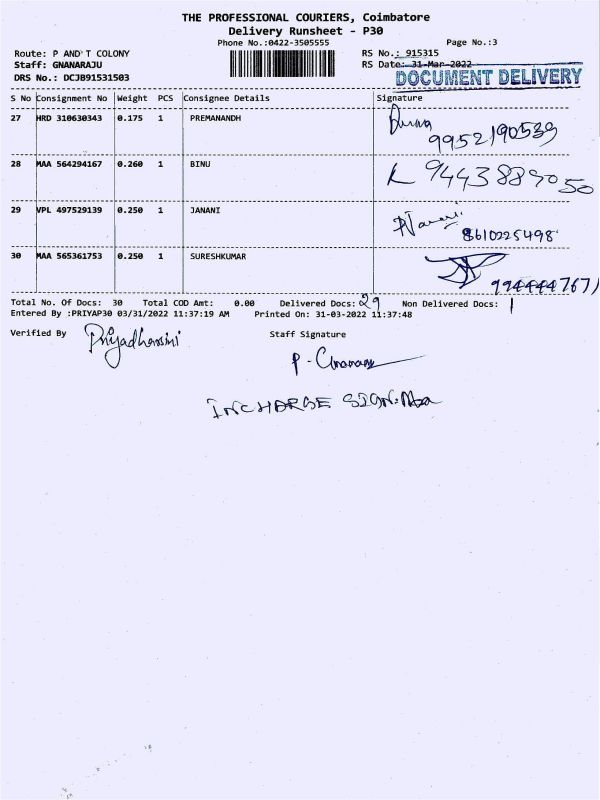 THE PROFESSIONAL COURIERS, Coimbatore
Delivery Runsheet - P30
Phone No.:0422-3505555 Page No.:3
Route: P AND'T COLONY RS No.: 915315
Staff: GNANARAJU RS Date: 31-Mar-2022
DRS No.: DCJB91531503 DOCUMENT DELIVERY
S No Consignment No Weight PCS Consignee Details Signature
27 HRD 310630343 0.175 1 PREMANANDH
9952190539
28 MAA 564294167 0.260 1 BINU
9443889050
29 VPL 497529139 0.250 1 JANANI
8610225498
30 MAA 565361753 0.250 1 SURESHKUMAR
Total No. Of Docs: 30 Total COD Amt: 0.00 Delivered Docs: 29 Non Delivered Docs: 1
Entered By :PRIYAP30 03/31/2022 11:37:19 AM Printed On: 31-03-2022 11:37:48
Verified By Priyadharsini Staff Signature
INCHARGE SIGN: